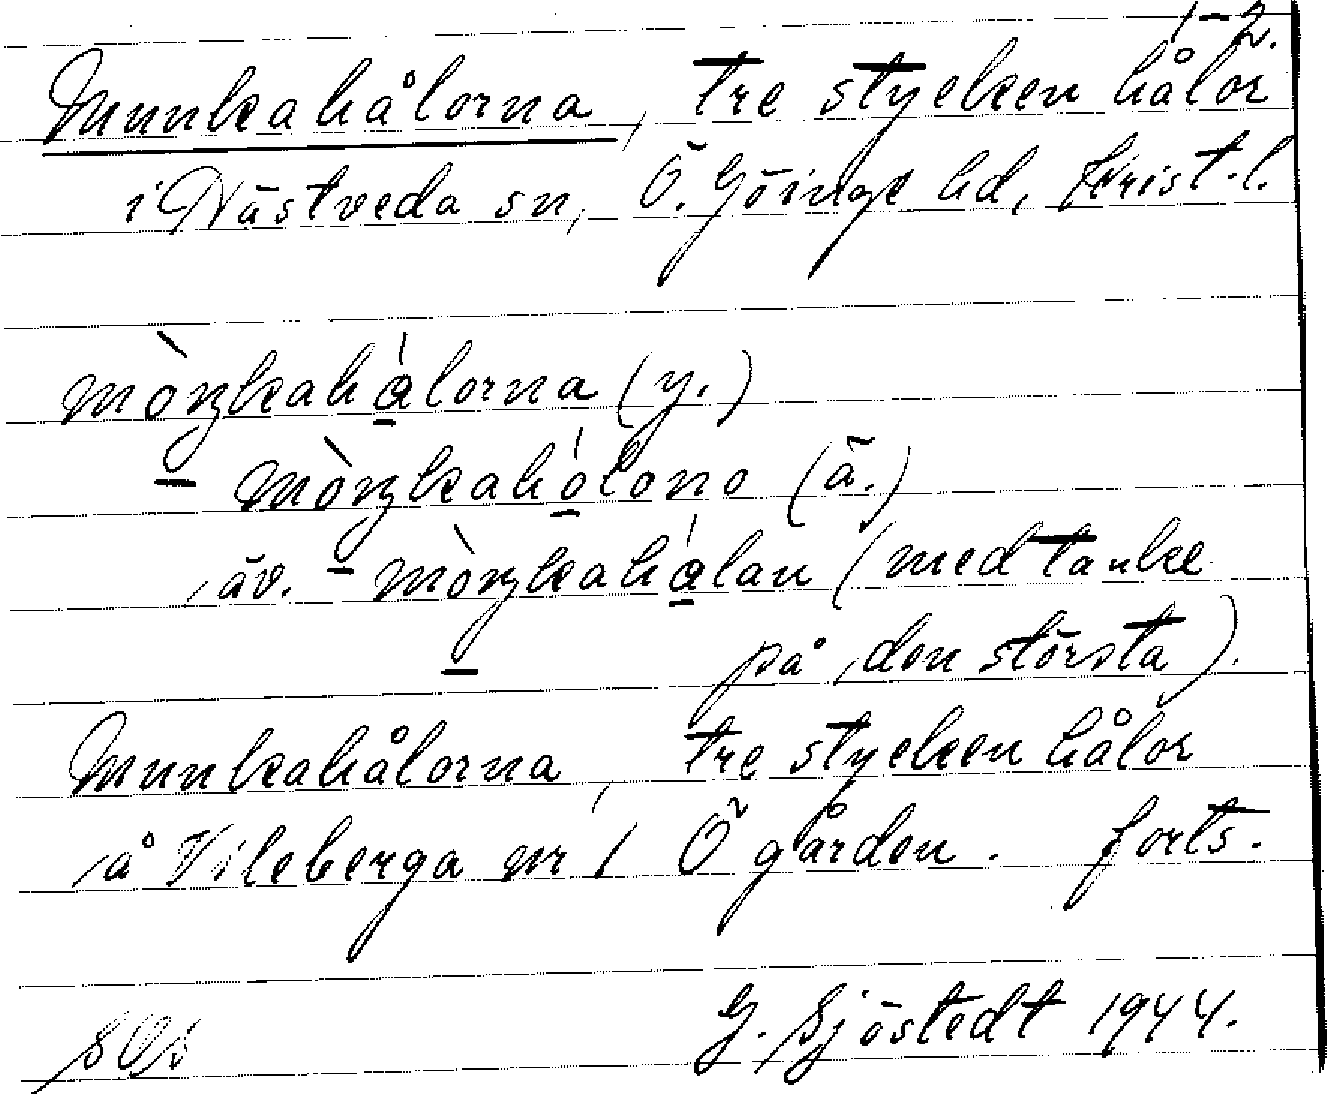 1-2.
Munkahålorna, tre stycken hålor
i Västveda sn, Ö. Göinge hd, Krist. l.
mòŋkahålorna (y.)
mòŋkahólono (ä.)
äv. mòŋkahålan (med tanke
på den största).
Munkahålorna, tre stycken hålor
å Vileberga nr 1 Ö gården. forts.
G. Sjöstedt 1944.